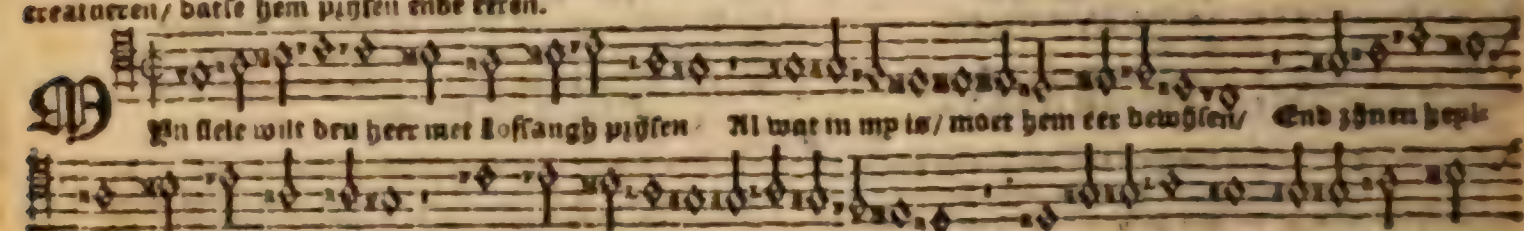 creatueren/ datse hem prijsen ende eeren.
MYn siele wilt den heer met Loffangh prijsen Al wat in my is/ moet hem eer bewijsen/ End zijnen heyli